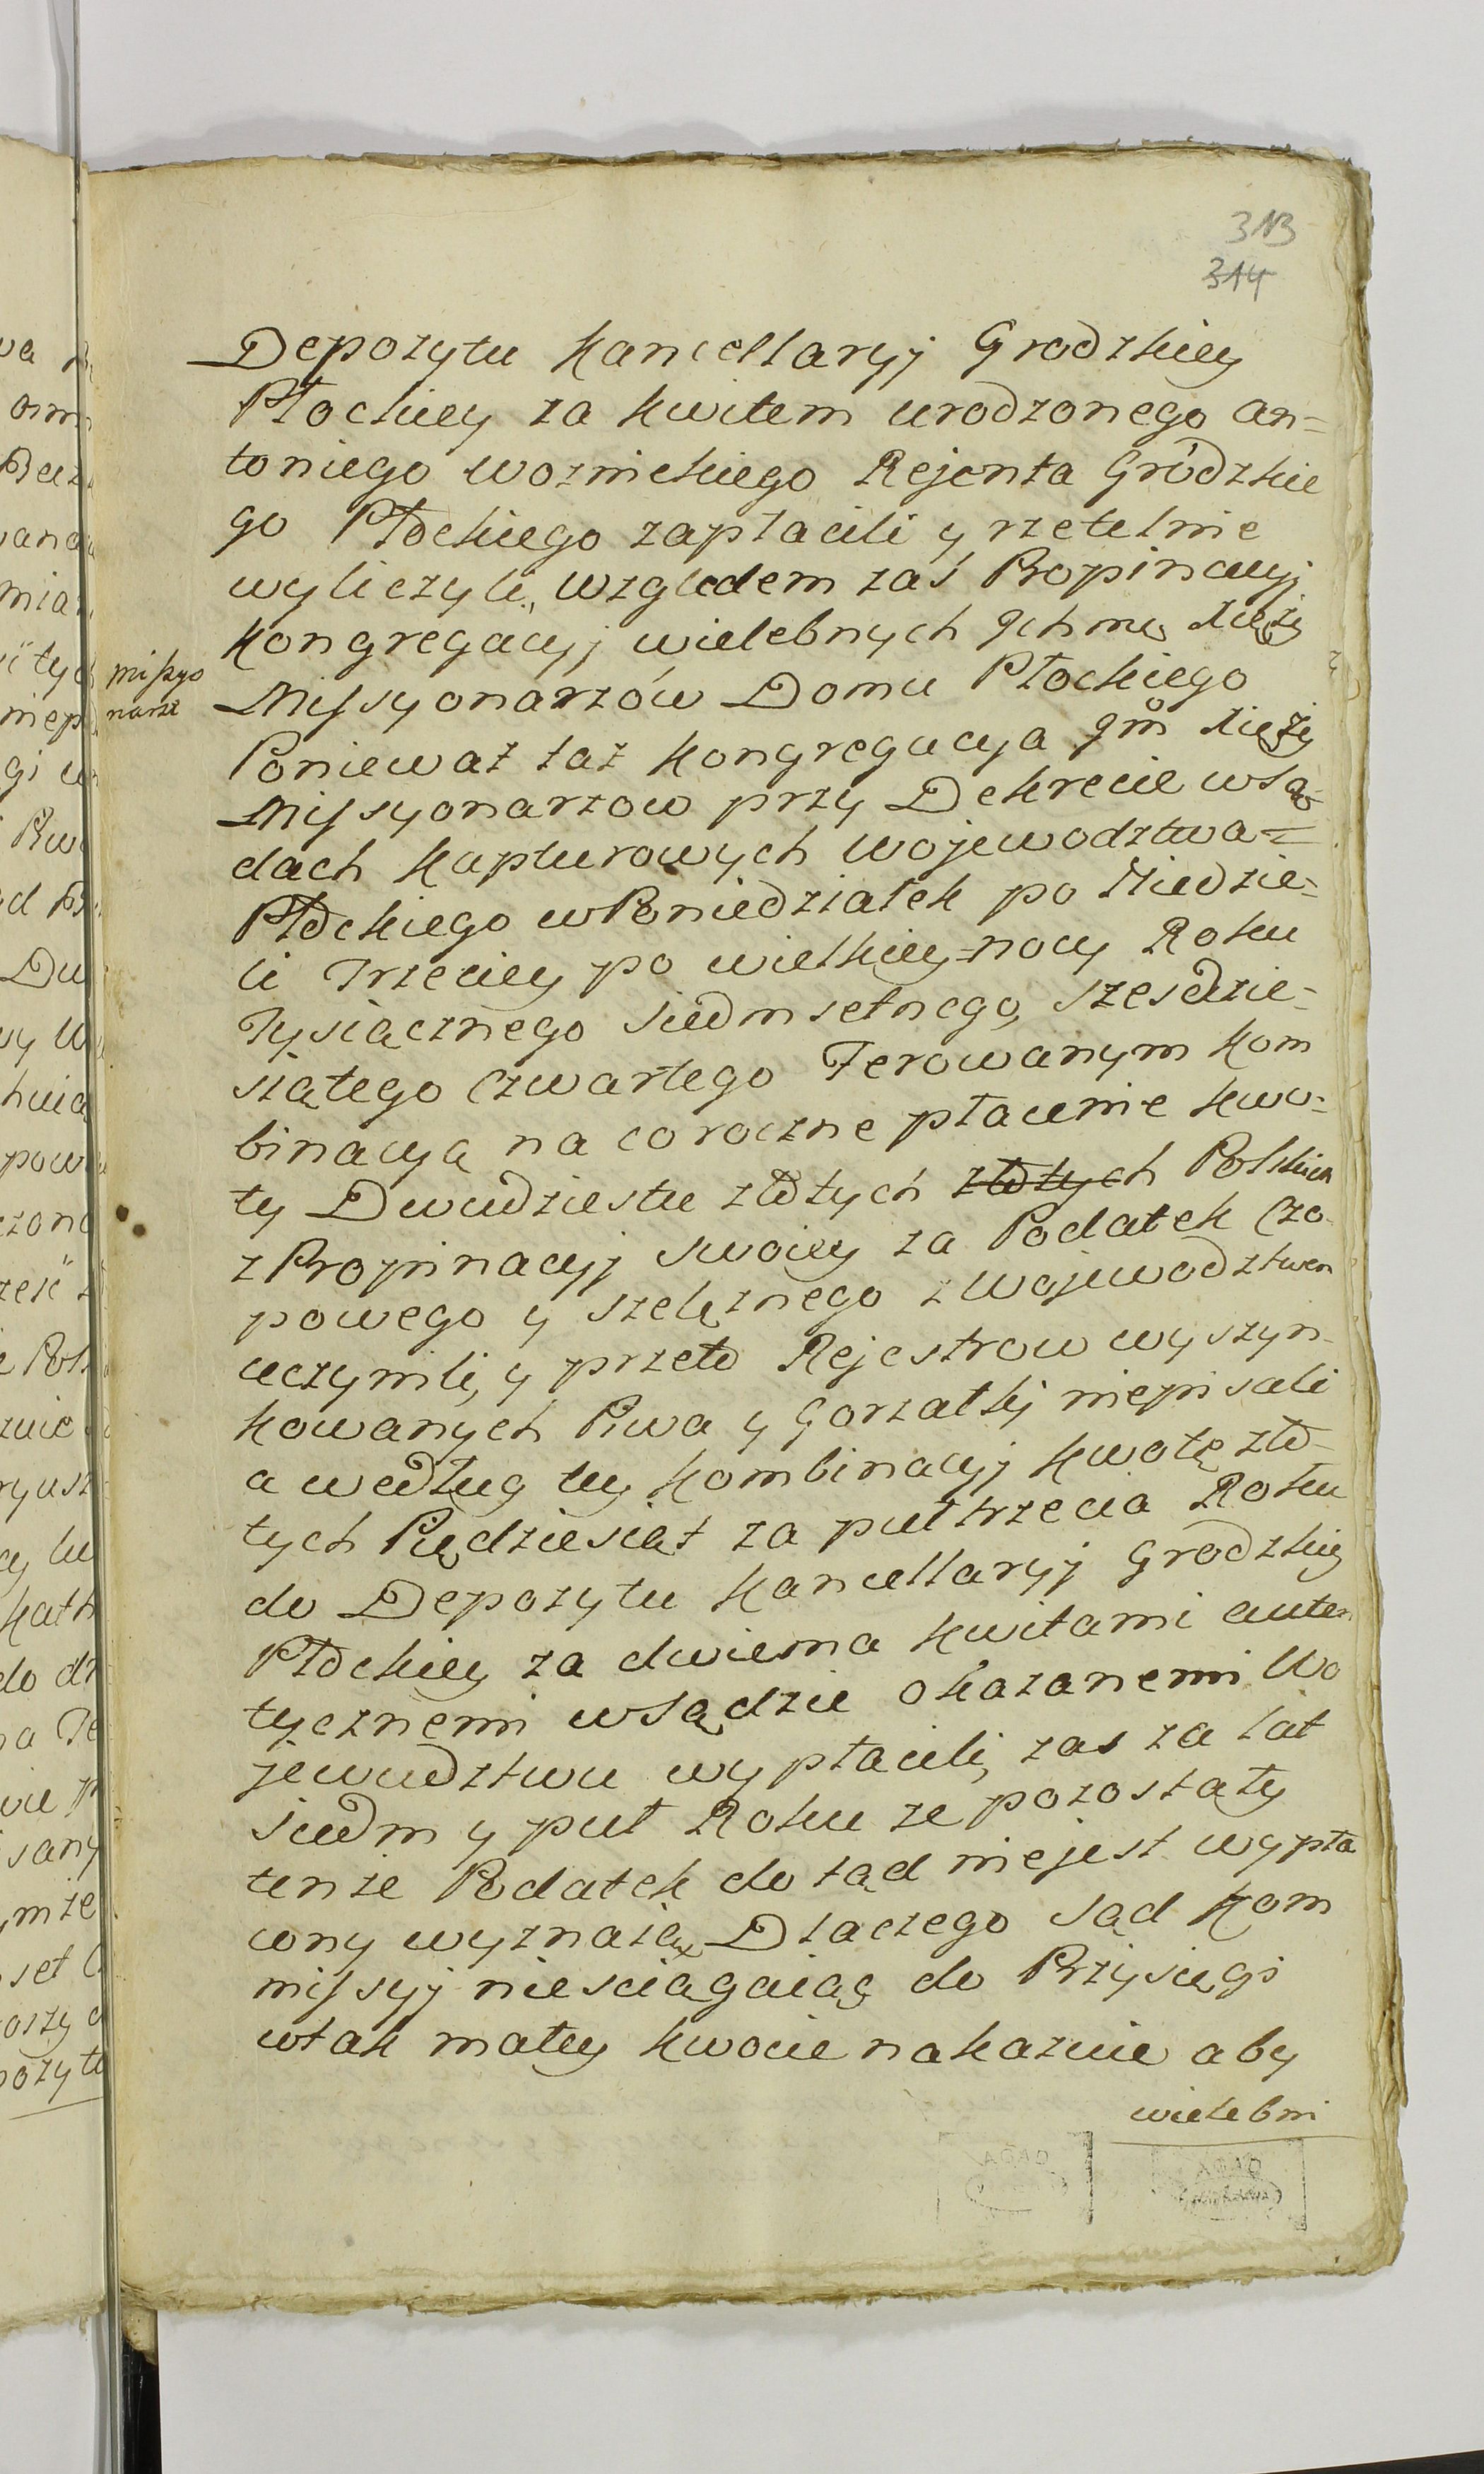 313
314
Depozytu Kancellaryj Grodzkiey
Płockiey za kwitem urodzonego An=
toniego Woznickiego Rejenta Grodzkie
go Płockiego zapłacili y rzetelnie
wyliczyli, względem zaś Propinacyj
Kongregacyj wielebnych Ichmę Xięży
Missyo
narze
Missyonarzów Domu Płockiego
Poniewaz taż Kongregacya Jm Xięży
Missyonarzow przy Dekrecie wsą-
dach Kapturowych Wojewodztwa=
Płockiego wPoniedziałek po Niedzie=
li Trzeciey po wielkiey-nocy Roku
Tysiącznego siedmsetnego, szesdzie=
siątego Czwartego Ferowanym Kom
binacyą na coroczne płacenie kwo=
ty Dwudziestu złotych złotych Polskich
zPropinacyj swoiey za Podatek Czo-
powego y szelęznego z Wojewodztwem
uczynili, y przeto Rejestrow wyszyn-
kowanych Piwa y Gorzałki niepisali
a według tey Kombinacyj kwotę zło-
tych Pięćdziesiąt za pułtrzecia Roku
do Depozytu Kancellaryj Grodzkiey
Płockiey za dwiema kwitami auten
tycznemi wsądzie okazanemi Wo
jewudztwu wypłacili, zas za lat
siedm y puł Roku ze pozostały
tenze Podatek do tąd niejest wypła
cony wyznaią, Dlaczego Sąd Kom
missyj niesciągaiąc do Przysięgi
wtak małey kwocie nakazuie aby
wielebni
AGAD
AGAD